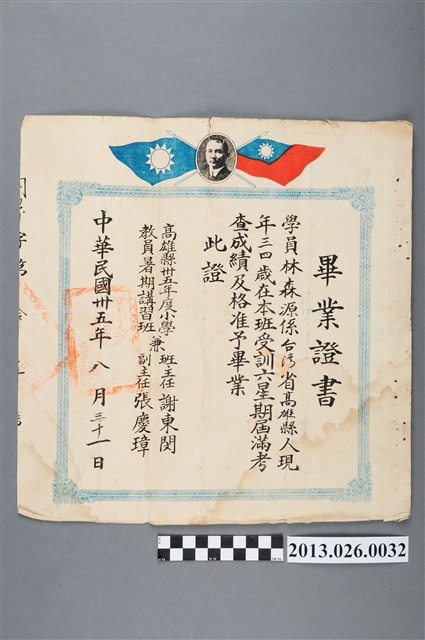 畢業證書
學員林森源係台灣省高雄縣人現
年三四歲在本班受訓六星期屆滿考
查成績及格准予畢業
此證
高雄縣卅五年度小學教員暑期講習班
兼班主任謝東閔
副主任張慶璋
中華民國卅五年八月三十一日
字第
2013.026.0032